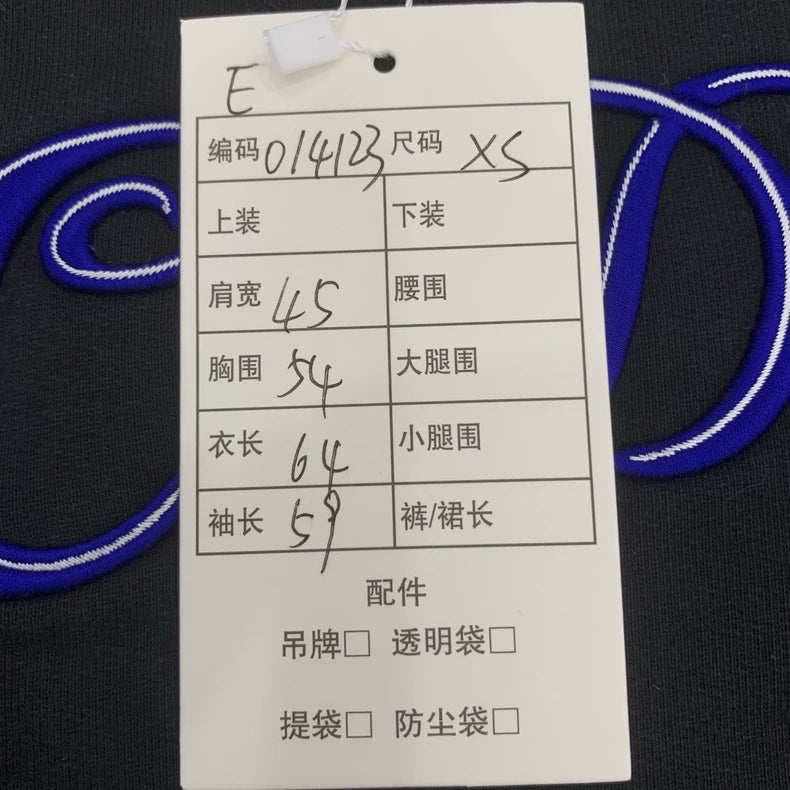 E
编码 014123 尺码 XS
上装 下装
肩宽 45 腰围
胸围 54 大腿围
衣长 64 小腿围
袖长 59 裤/裙长
配件
吊牌□ 透明袋□
提袋□ 防尘袋□